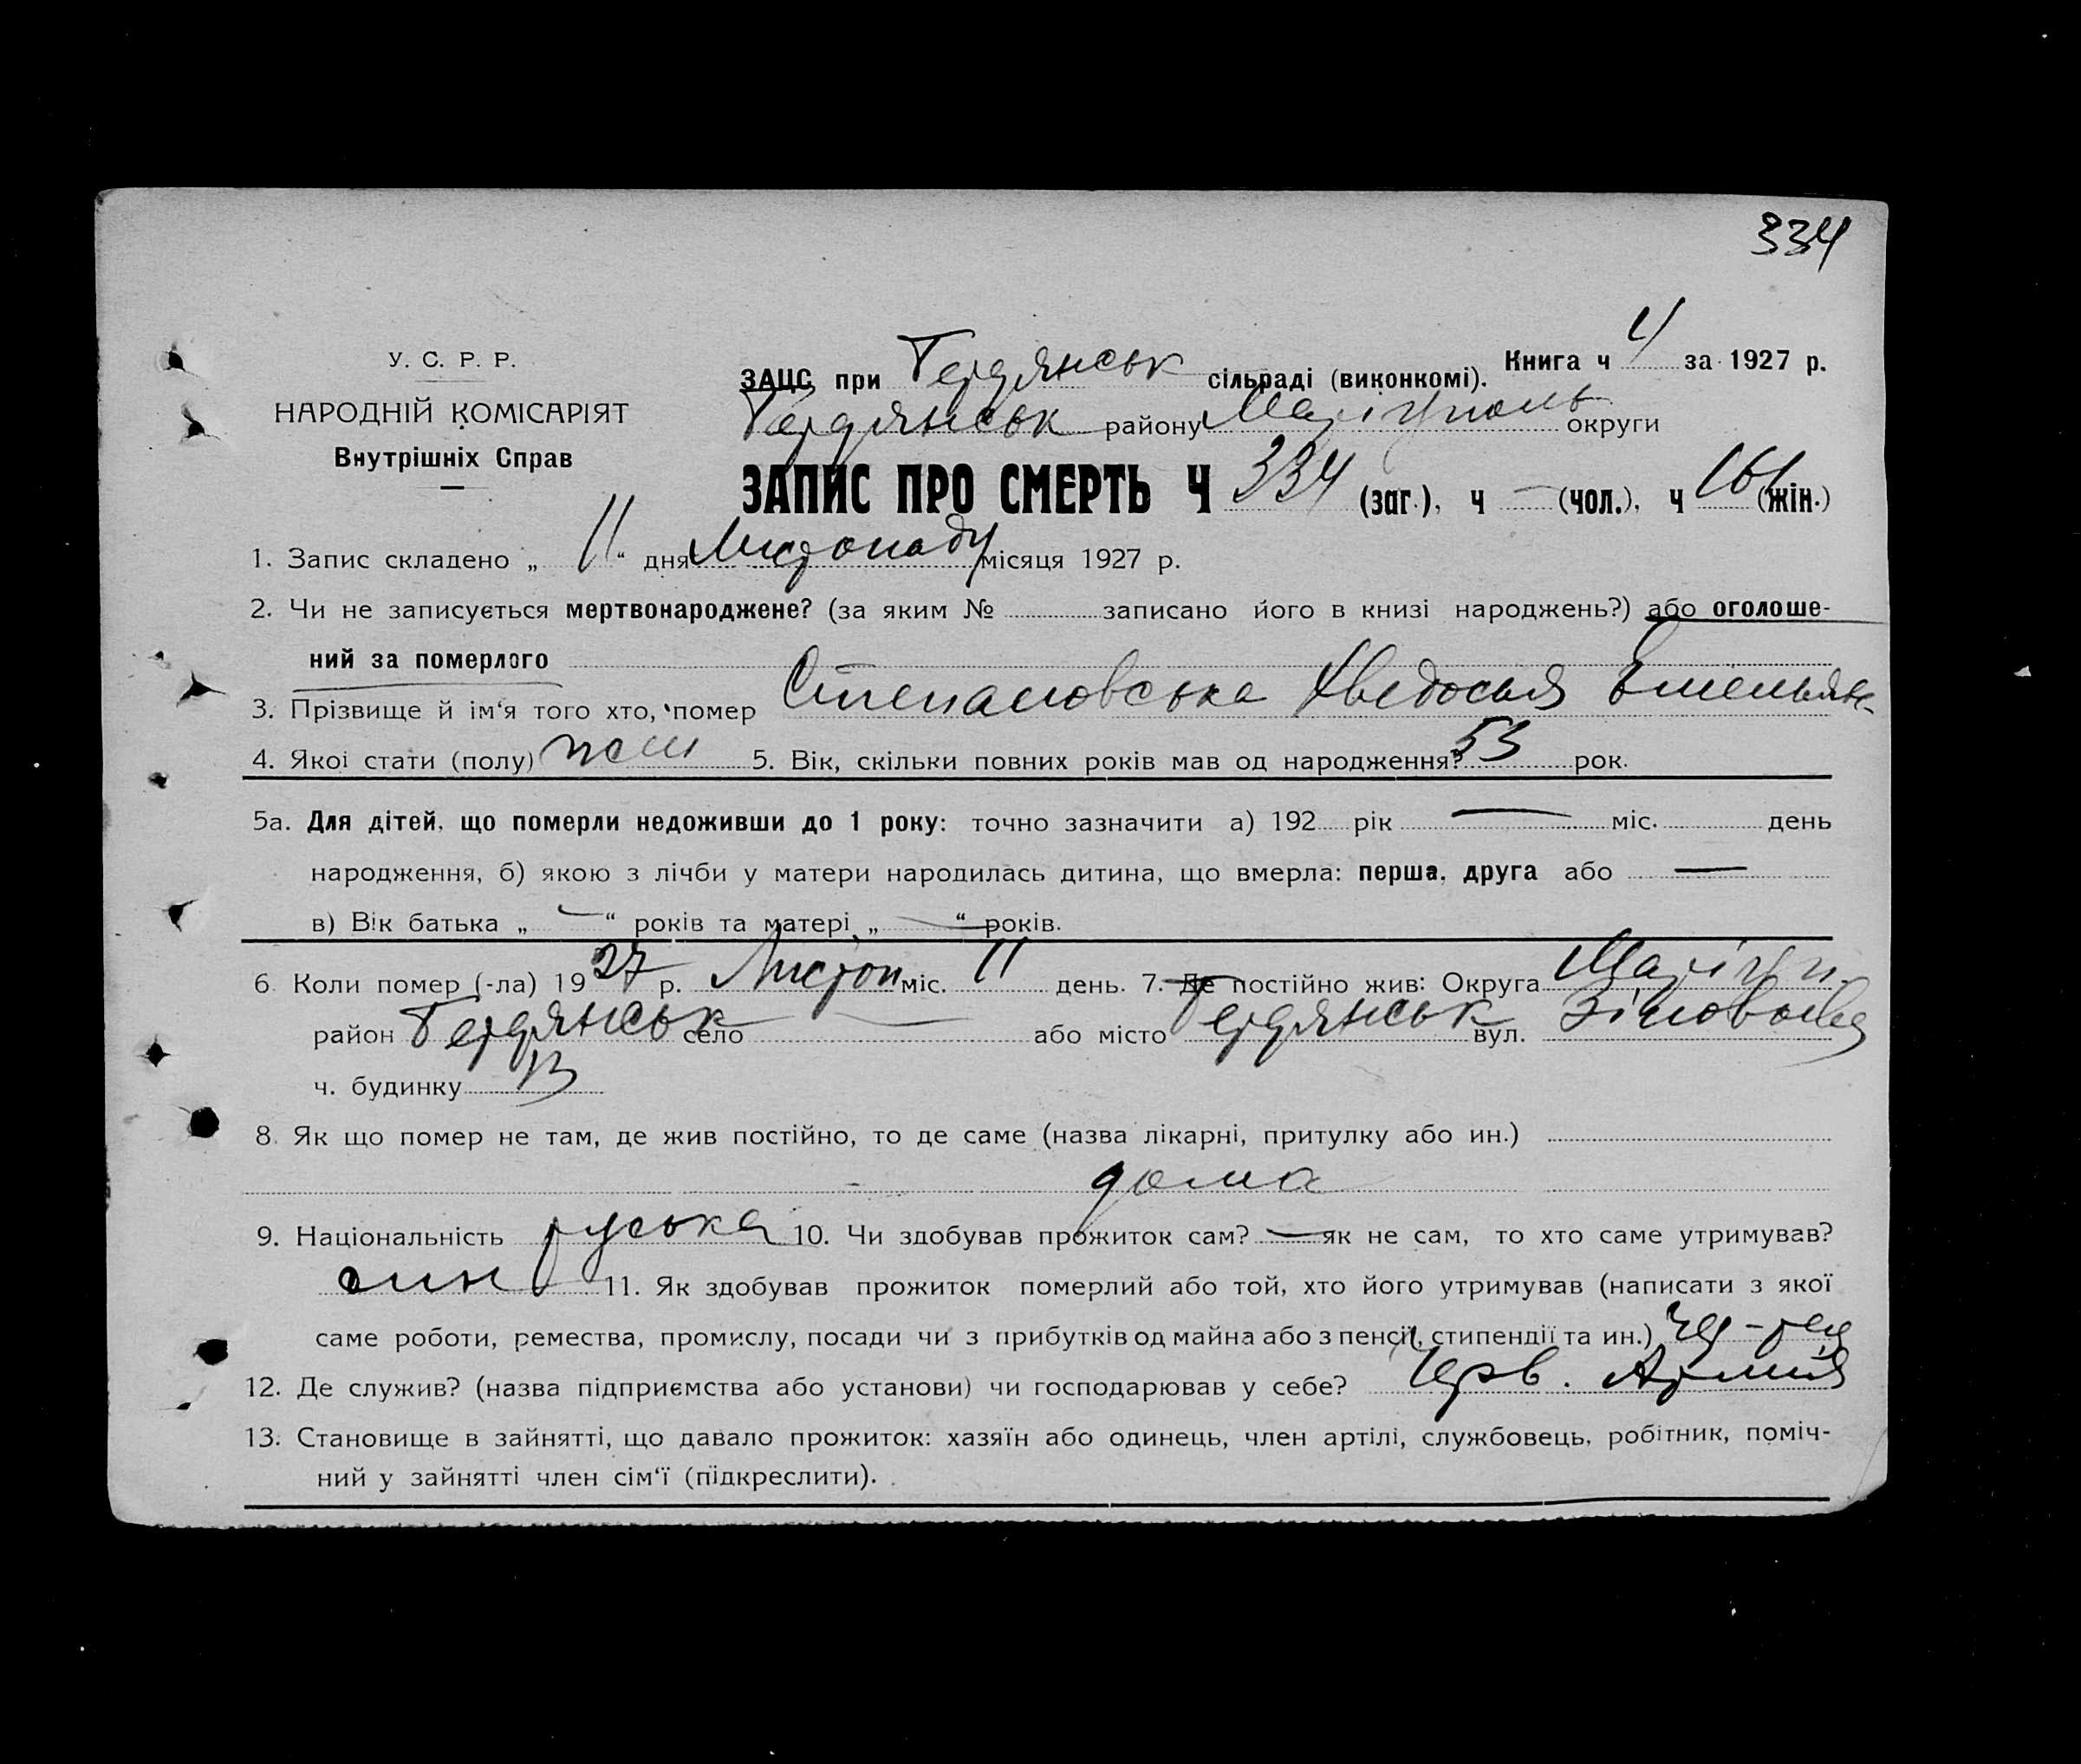 334
У. С. Р. Р.
НАРОДНІЙ КОМІСАРІЯТ
Внутрішніх Справ
ЗАЦС при Бердянськ сільраді (виконкомі). Книга ч 4 за 1927 р.
Бердянськ району Маріуполь округи
ЗАПИС ПРО СМЕРТЬ Ч 334 (заг.), ч — (чол.), ч 161 (жін.)
1. Запис складено „ 11 “ дня Листопаду місяця 1927 р.
2. Чи не записується мертвонароджене? (за яким № записано його в книзі народжень?) або оголоше-
ний за померлого
3. Прізвище й ім‘я того хто, помер Степановська Хведосья Емельян-
4. Якоі стати (полу) жін 5. Вік, скільки повних років мав од народження? 53 рок.
5а. Для дітей, що померли недоживши до 1 року: точно зазначити а) 192 рік — міс. день
народження, б) якою з лічби у матери народилась дитина, що вмерла: перша, друга або —
в) Вік батька „ — “ років та матері „ — “ років.
6 Коли помер (-ла) 1927 р. Листоп міс. 11 день. 7. Де постійно жив: Округа Маріуп.
район Бердянськ село — або місто Бердянськ вул. Зіновьева
ч. будинку 13
8. Як що помер не там, де жив постійно, то де саме (назва лікарні, притулку або ин.)
дома
9. Національність руська 10. Чи здобував прожиток сам? — як не сам, то хто саме утримував?
син 11. Як здобував прожиток померлий або той, хто його утримував (написати з якої
саме роботи, ремества, промислу, посади чи з прибутків од майна або з пенсії, стипендії та ин.)
12. Де служив? (назва підприємства або установи) чи господарював у себе? Черв. Армия
13. Становище в зайнятті, що давало прожиток: хазяїн або одинець, член артілі, службовець, робітник, поміч-
ний у зайнятті член сім‘ї (підкреслити).